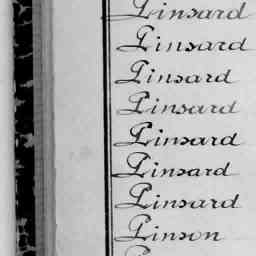 Pinsard
Pinsard
Pinsard
Pinsard
Pinsard
Pinsard
Pinsard
Pinson